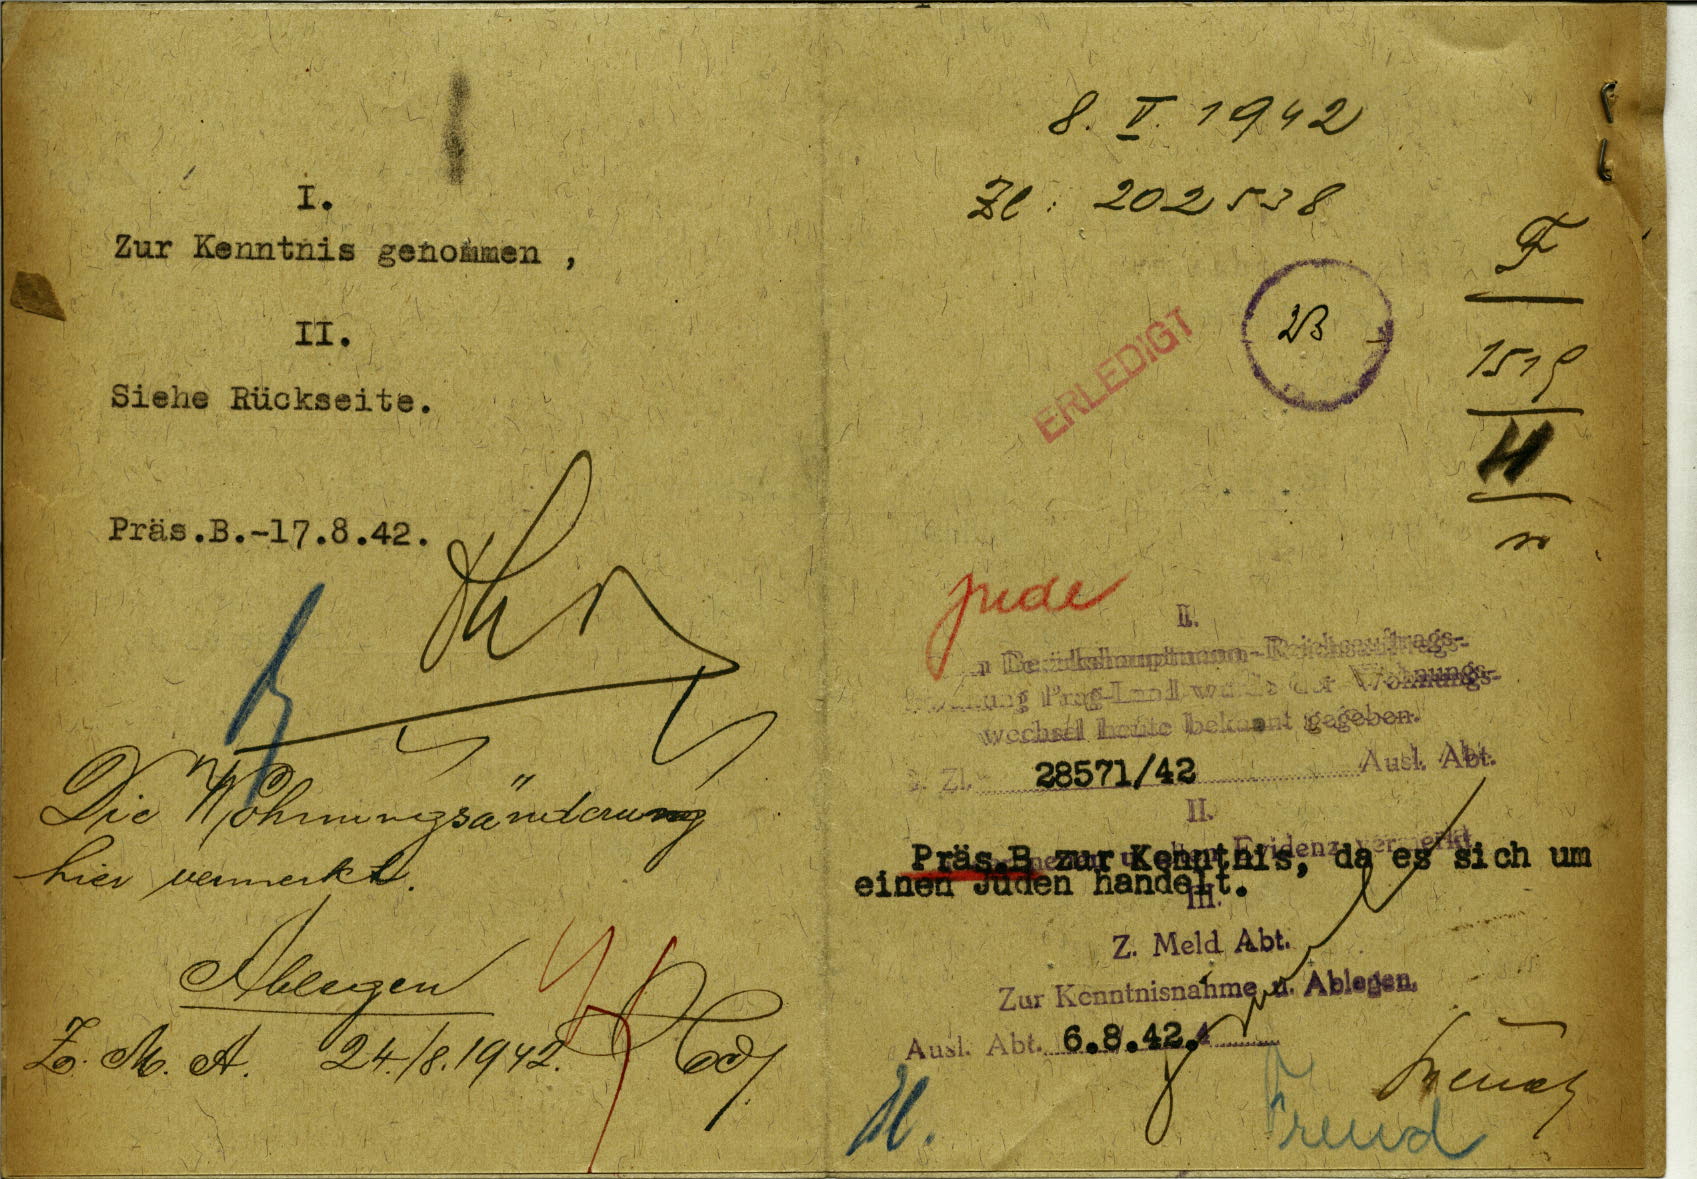 I.
Zur Kenntnis genommen ,
II.
Siehe Rückseite.
Präs.B.-17.8.42.
Die Wohnungsänderung
hier vermerkt.
Ablegen
Z. M. A. 24./8.1942.
8. V. 1942
Zl: 202538
F
1519
H
ERLEDIGT
Jude
I.
Prag-Land wurde der Wohnungs-
wechsel heute bekannt gegeben.
Zl. 28571/42 Ausl. Abt.
II.
Evidenz vermerkt
Präs.B zur Kenntnis, da es sich um
einen Juden handelt.
III.
Z. Meld Abt.
Zur Kenntnisnahme u. Ablegen.
Ausl. Abt. 6.8.42.
Freud